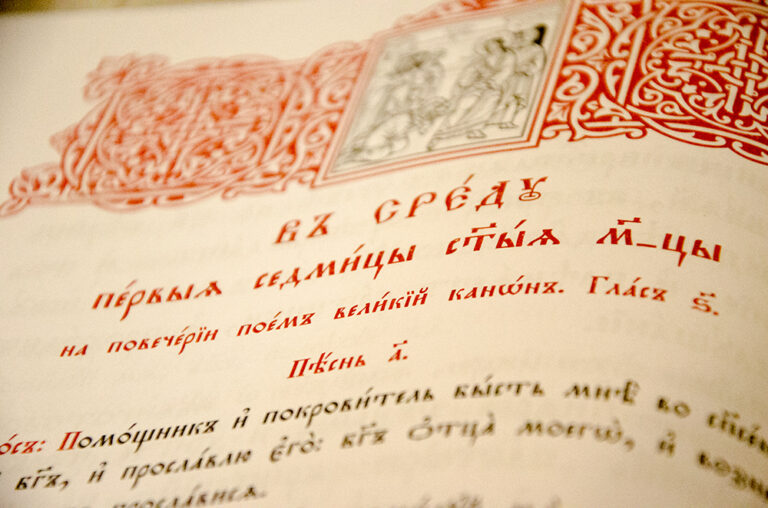 въ сре́дꙋ
пе́рвыѧ седми́цы ст҃ы́ѧ м҃_цы
на повече́рїи пое́мъ вели́кїй канѡ́нъ. Гла́съ ѕ҃.
Пѣ́снь а҃.
Помо́щникъ и҆ покрови́тель бы́сть мнѣ̀ во
бг҃ъ, и҆ просла́влю є҆го̀: бг҃ъ ѻ҆тца̀ моегѡ̀, и҆
просла́висѧ.